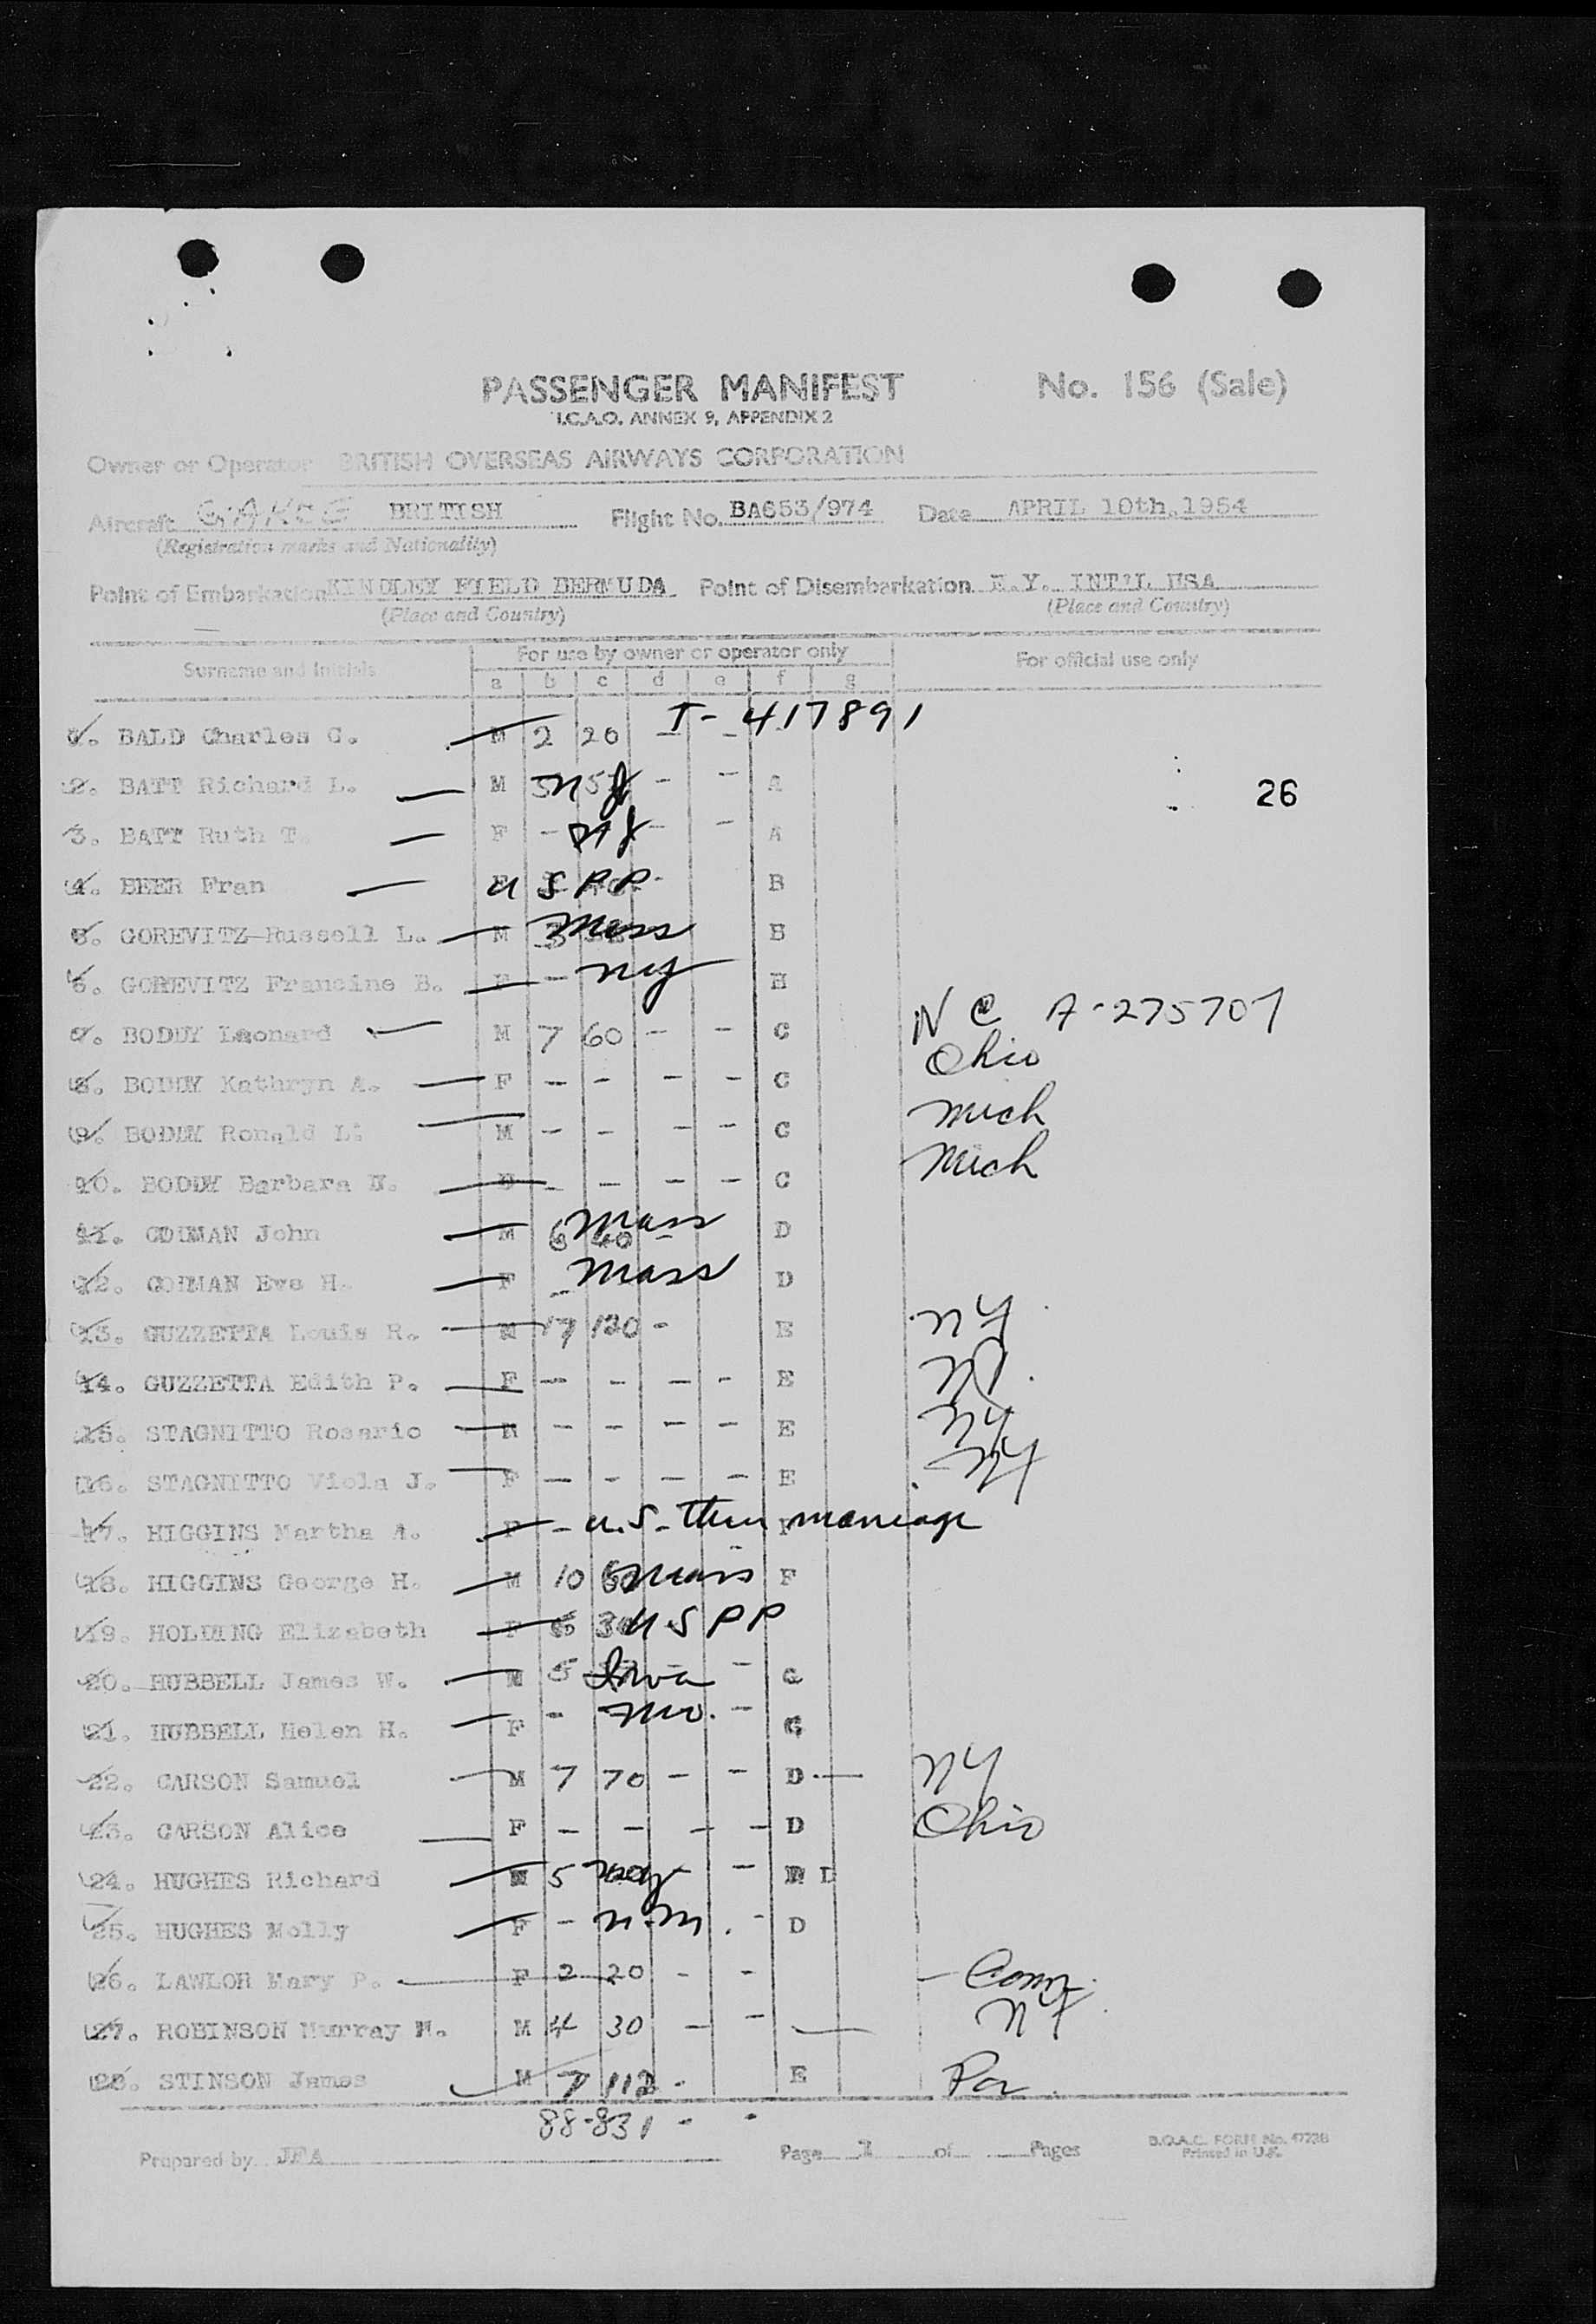 PASSENGER MANIFEST No. 156 (Sale)
I.C.A.O. ANNEX 9, APPENDIX 2
Owner or Operator BRITISH OVERSEAS AIRWAYS CORPORATION
Aircraft BRITISH Flight No. BA653/974 Date APRIL 10th.1954
(Registration marks and Nationality)
Point of Embarkation KINDLEY FIELD BERMUDA Point of Disembarkation N.Y. INT'L USA
(Place and Country) (Place and Country)
Surname and Initials For use by owner or operator only For official use only
a b c d e f g
1. BALD Charles C. M 2 20 - - T-417891
2. BATT Richard L. M NJ - - A 26
3. BATT Ruth T. F - NY - - A
4. BEER Fran USPP - B
5. GOREVITZ Russell L. M Mass B
6. GOREVITZ Francine B. F - NY
7. BODDY Leonard M 7 60 - - C N C A-275707
8. BODDY Kathryn A. F - - - - C Ohio
9. BODDY Ronald L. M - - - - C Mich
10. BODDY Barbara - - - - C Mich
11. John M 6 40 - Mass D
12. Eve H. F - Mass D
13. GUZZETTA Louis R. M 17 120 - E NY
14. GUZZETTA Edith P. F - - - - E
15. STAGNITTO Rosario M - - - - E NY
16. STAGNITTO Viola J. F - - - - E NY
17. HIGGINS Martha A. F - U.S. - Thru marriage F
18. HIGGINS George H. M 10 Mass F
19. HOLDING Elizabeth F USPP
20. HUBBELL James W. M 5 Iowa - G
21. HUBBELL Helen H. F - Mo. - G
22. CARSON Samuel M 7 70 - - D NY
23. CARSON Alice F - - - - D Ohio
24. HUGHES Richard M 5 - D
25. HUGHES Molly F - N.M. - D
26. LAWLOR Mary P. F 2 20 - - Conn.
27. ROBINSON Murray M 4 30 - - NY
28. STINSON James M 7 112 - E Pa
88-831 - -
Prepared by JFA Page 1 of Pages B.O.A.C. FORM No.
Printed in U.K.